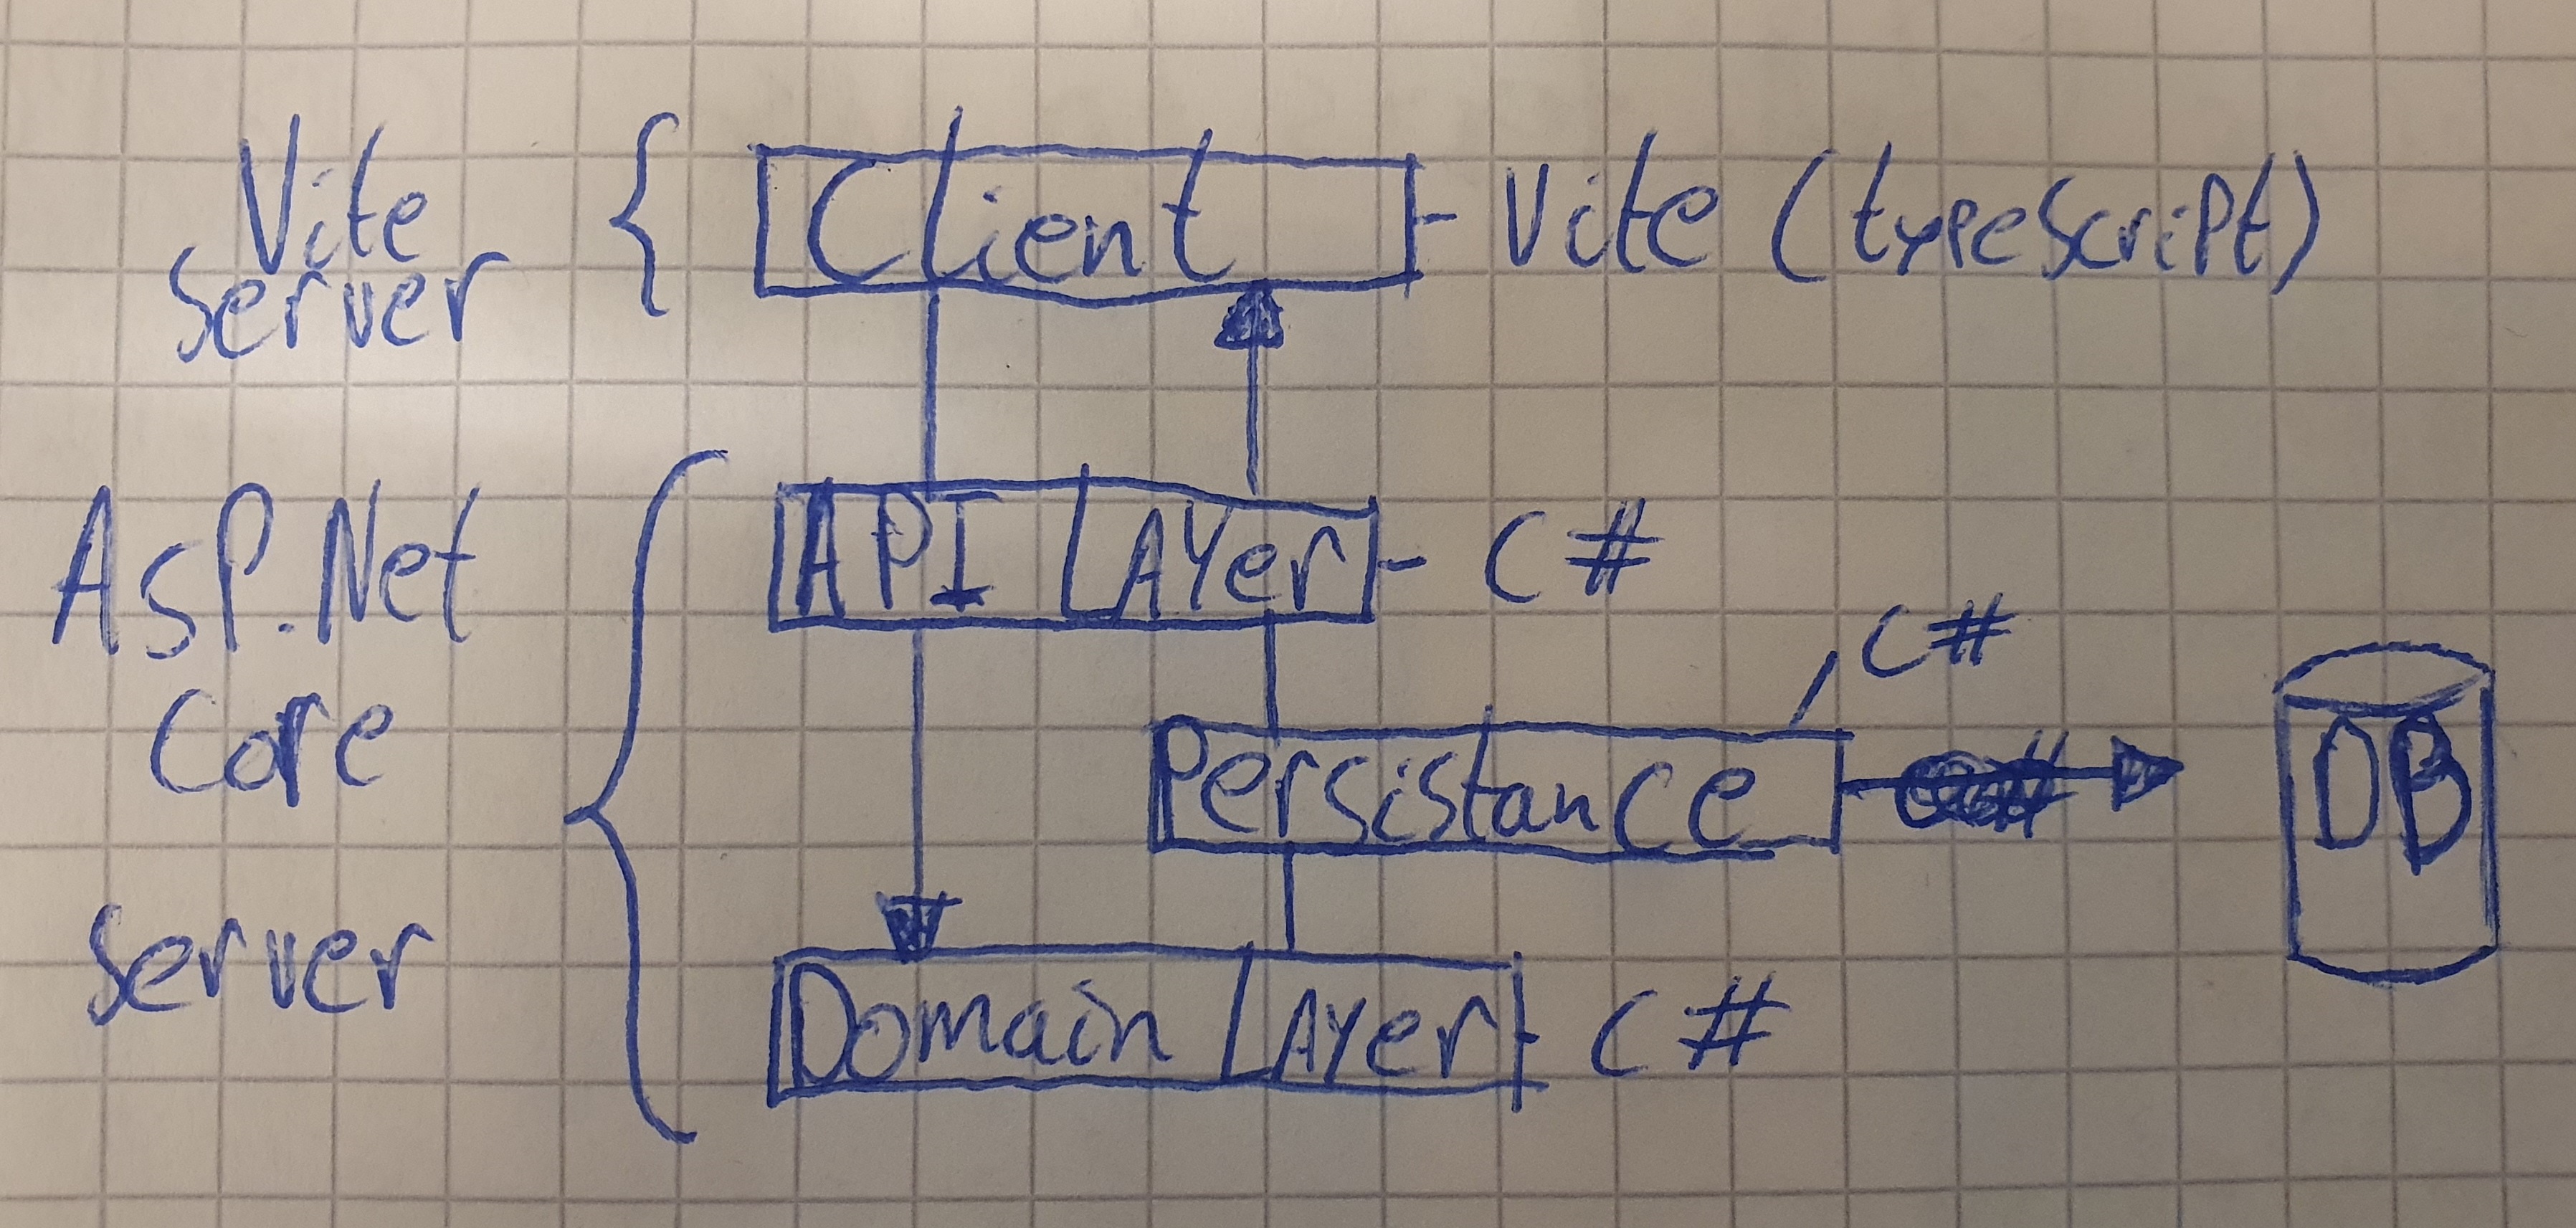 Vite
Server
Client - Vite (typescript)
Asp.Net
Core
Server
API LAYer - C#
C#
Persistance
DB
Domain LAYer - C#